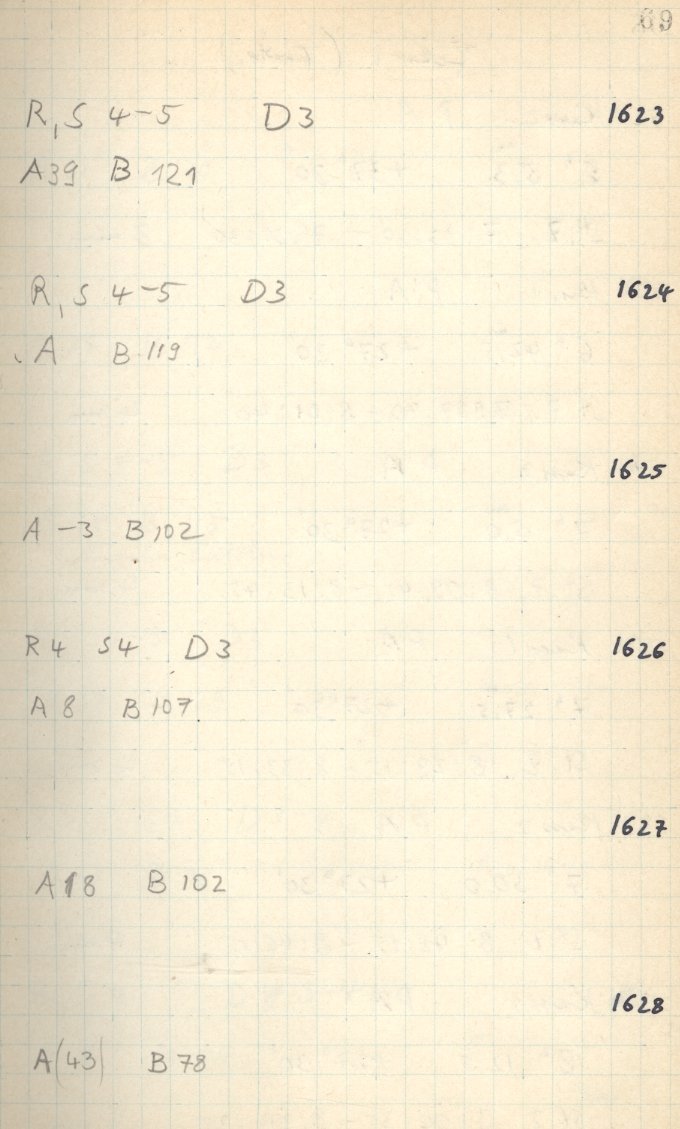 69
R, S 4-5 D3 1623
A39 B 121
R, S 4-5 D3 1624
A B 119
1625
A -3 B 102
R4 S4 D3 1626
A 8 B 107
1627
A18 B 102
1628
A(43) B 78